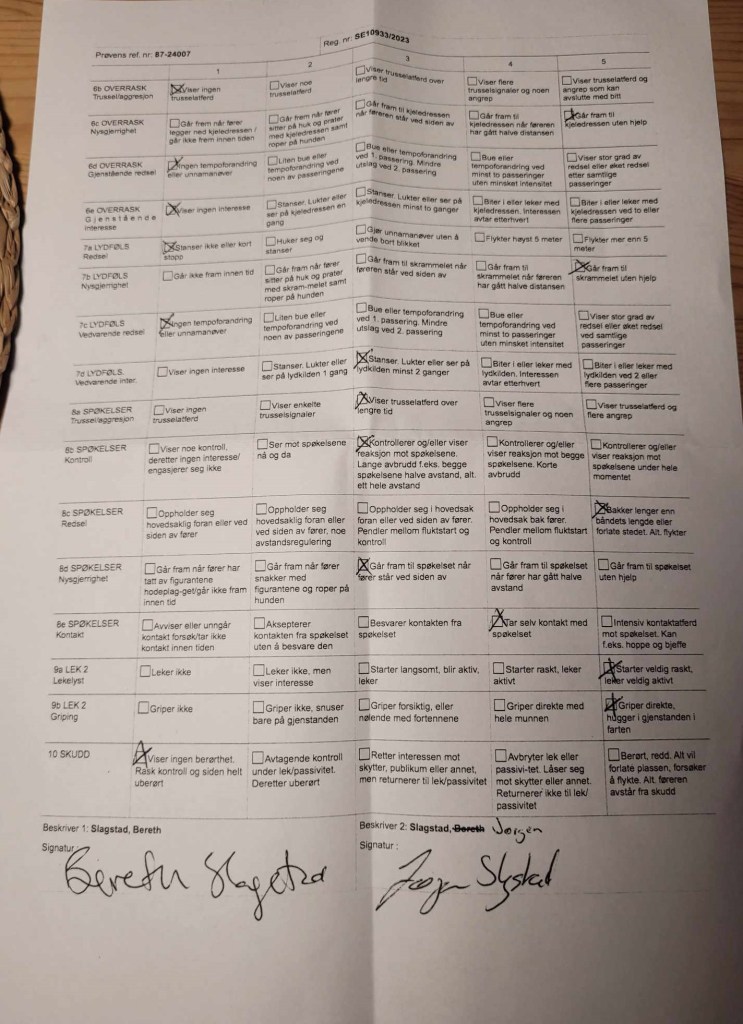 Reg. nr: SE10933/2023
Prøvens ref. nr: 87-24007
1 2 3 4 5
6b OVERRASK
Trussel/aggresjon
Viser ingen
trusselatferd
Viser noe
trusselatferd
Viser trusselatferd over
lengre tid
Viser flere
trusselsignaler og noen
angrep
Viser trusselatferd og
angrep som kan
avslutte med bitt
6c OVERRASK
Nysgjerrighet
Går frem når fører
legger ned kjeledressen /
går ikke frem innen tiden
Går fram når fører
sitter på huk og prater
med kjeledressen samt
roper på hunden
Går fram til kjeledressen
når føreren står ved siden av
Går fram til
kjeledressen når føreren
har gått halve distansen
Går fram til
kjeledressen uten hjelp
6d OVERRASK
Gjenstående redsel
Ingen tempoforandring
eller unnamanøver
Liten bue eller
tempoforandring ved
noen av passeringene
Bue eller tempoforandring
ved 1. passering. Mindre
utslag ved 2. passering
Bue eller
tempoforandring ved
minst to passeringer
uten minsket intensitet
Viser stor grad av
redsel eller øket redsel
etter samtlige
passeringer
6e OVERRASK
Gjenstående
Interesse
Viser ingen interesse
Stanser. Lukter eller
ser på kjeledressen en
gang
Stanser. Lukter eller ser på
kjeledressen minst to ganger
Biter i eller leker med
kjeledressen. Interessen
avtar etterhvert
Biter i eller leker med
kjeledressen ved to eller
flere passeringer
7a LYDFØLS
Redsel
Stanser ikke eller kort
stopp
Huker seg og
stanser
Gjør unnamanøver uten å
vende bort blikket
Flykter høyst 5 meter
Flykter mer enn 5
meter
7b LYDFØLS
Nysgjerrighet
Går ikke fram innen tid
Går fram når fører
sitter på huk og prater
med skram-melet samt
roper på hunden
Går fram til skrammelet når
føreren står ved siden av
Går fram til
skrammelet når føreren
har gått halve distansen
Går fram til
skrammelet uten hjelp
7c LYDFØLS
Vedvarende redsel
Ingen tempoforandring
eller unnamanøver
Liten bue eller
tempoforandring ved
noen av passeringene
Bue eller tempoforandring
ved 1. passering. Mindre
utslag ved 2. passering
Bue eller
tempoforandring ved
minst to passeringer
uten minsket intensitet
Viser stor grad av
redsel eller øket redsel
ved samtlige
passeringer
7d LYDFØLS.
Vedvarende inter.
Viser ingen interesse
Stanser. Lukter eller
ser på lydkilden 1 gang
Stanser. Lukter eller ser på
lydkilden minst 2 ganger
Biter i eller leker med
lydkilden. Interessen
avtar etterhvert
Biter i eller leker med
lydkilden ved 2 eller
flere passeringer
8a SPØKELSER
Trussel/aggresjon
Viser ingen
trusselatferd
Viser enkelte
trusselsignaler
Viser trusselatferd over
lengre tid
Viser flere
trusselsignaler og noen
angrep
Viser trusselatferd og
flere angrep
8b SPØKELSER
Kontroll
Viser noe kontroll,
deretter ingen interesse/
engasjerer seg ikke
Ser mot spøkelsene
nå og da
Kontrollerer og/eller viser
reaksjon mot spøkelsene.
Lange avbrudd f.eks. begge
spøkelsene halve avstand, alt.
ett hele avstand
Kontrollerer og/eller
viser reaksjon mot begge
spøkelsene. Korte
avbrudd
Kontrollerer og/eller
viser reaksjon mot
spøkelsene under hele
momentet
8c SPØKELSER
Redsel
Oppholder seg
hovedsaklig foran eller ved
siden av fører
Oppholder seg
hovedsaklig foran eller
ved siden av fører, noe
avstandsregulering
Oppholder seg i hovedsak
foran eller ved siden av fører.
Pendler mellom fluktstart og
kontroll
Oppholder seg i
hovedsak bak fører.
Pendler mellom fluktstart
og kontroll
Bakker lenger enn
båndets lengde eller
forlate stedet. Alt. flykter
8d SPØKELSER
Nysgjerrighet
Går fram når fører har
tatt av figurantene
hodeplag-get/går ikke fram
innen tid
Går fram når fører
snakker med
figurantene og roper på
hunden
Går fram til spøkelset når
fører står ved siden av
Går fram til spøkelset
når fører har gått halve
avstand
Går fram til spøkelset
uten hjelp
8e SPØKELSER
Kontakt
Avviser eller unngår
kontakt forsøk/tar ikke
kontakt innen tiden
Aksepterer
kontakten fra spøkelset
uten å besvare den
Besvarer kontakten fra
spøkelset
Tar selv kontakt med
spøkelset
Intensiv kontaktatferd
mot spøkelset. Kan
f.eks. hoppe og bjeffe
9a LEK 2
Lekelyst
Leker ikke
Leker ikke, men
viser interesse
Starter langsomt, blir aktiv,
leker
Starter raskt, leker
aktivt
Starter veldig raskt,
leker veldig aktivt
9b LEK 2
Griping
Griper ikke
Griper ikke, snuser
bare på gjenstanden
Griper forsiktig, eller
nølende med fortennene
Griper direkte med
hele munnen
Griper direkte,
hugger i gjenstanden i
farten
10 SKUDD
Viser ingen berørthet.
Rask kontroll og siden helt
uberørt
Avtagende kontroll
under lek/passivitet.
Deretter uberørt
Retter interessen mot
skytter, publikum eller annet,
men returnerer til lek/passivitet
Avbryter lek eller
passivi-tet. Låser seg
mot skytter eller annet.
Returnerer ikke til lek/
passivitet
Berørt, redd. Alt vil
forlate plassen, forsøker
å flykte. Alt. føreren
avstår fra skudd
Beskriver 1: Slagstad, Bereth
Beskriver 2: Slagstad, Bereth Jørgen
Signatur
Signatur :
Bereth Slagstad
Jørgen Slagstad